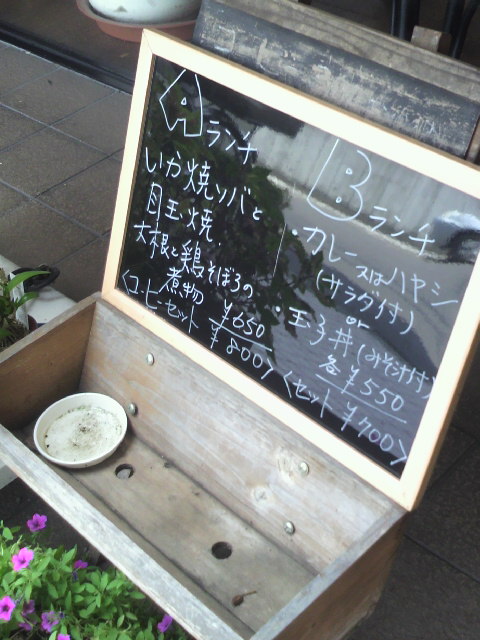 Aランチ
いか焼ソバと
目玉焼
大根と鶏そぼろの
煮物
¥650
〈コーヒーセット ¥800〉
Bランチ
・カレー又はハヤシ
(サラダ付)
or
・玉子丼(みそ汁付)
各¥550
〈セット ¥700〉